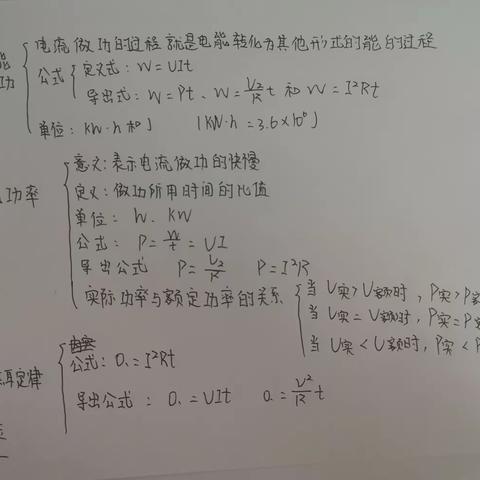 能 电流做功的过程就是电能转化为其他形式的能的过程
功 公式 定义式：W=UIt
导出式：W=Pt、W=U²/R t 和 W=I²Rt
单位：KW·h和J 1KW·h=3.6×10⁶J
意义：表示电流做功的快慢
功率 定义：做功所用时间的比值
单位：W、KW
公式：P=W/t=UI
导出公式 P=U²/R P=I²R
实际功率与额定功率的关系 当U实>U额时，P实>P
当U实=U额时，P实=P
当U实<U额时，P实<P
耳定律 公式：Q=I²Rt
导出公式：Q=UIt Q=U²/R t